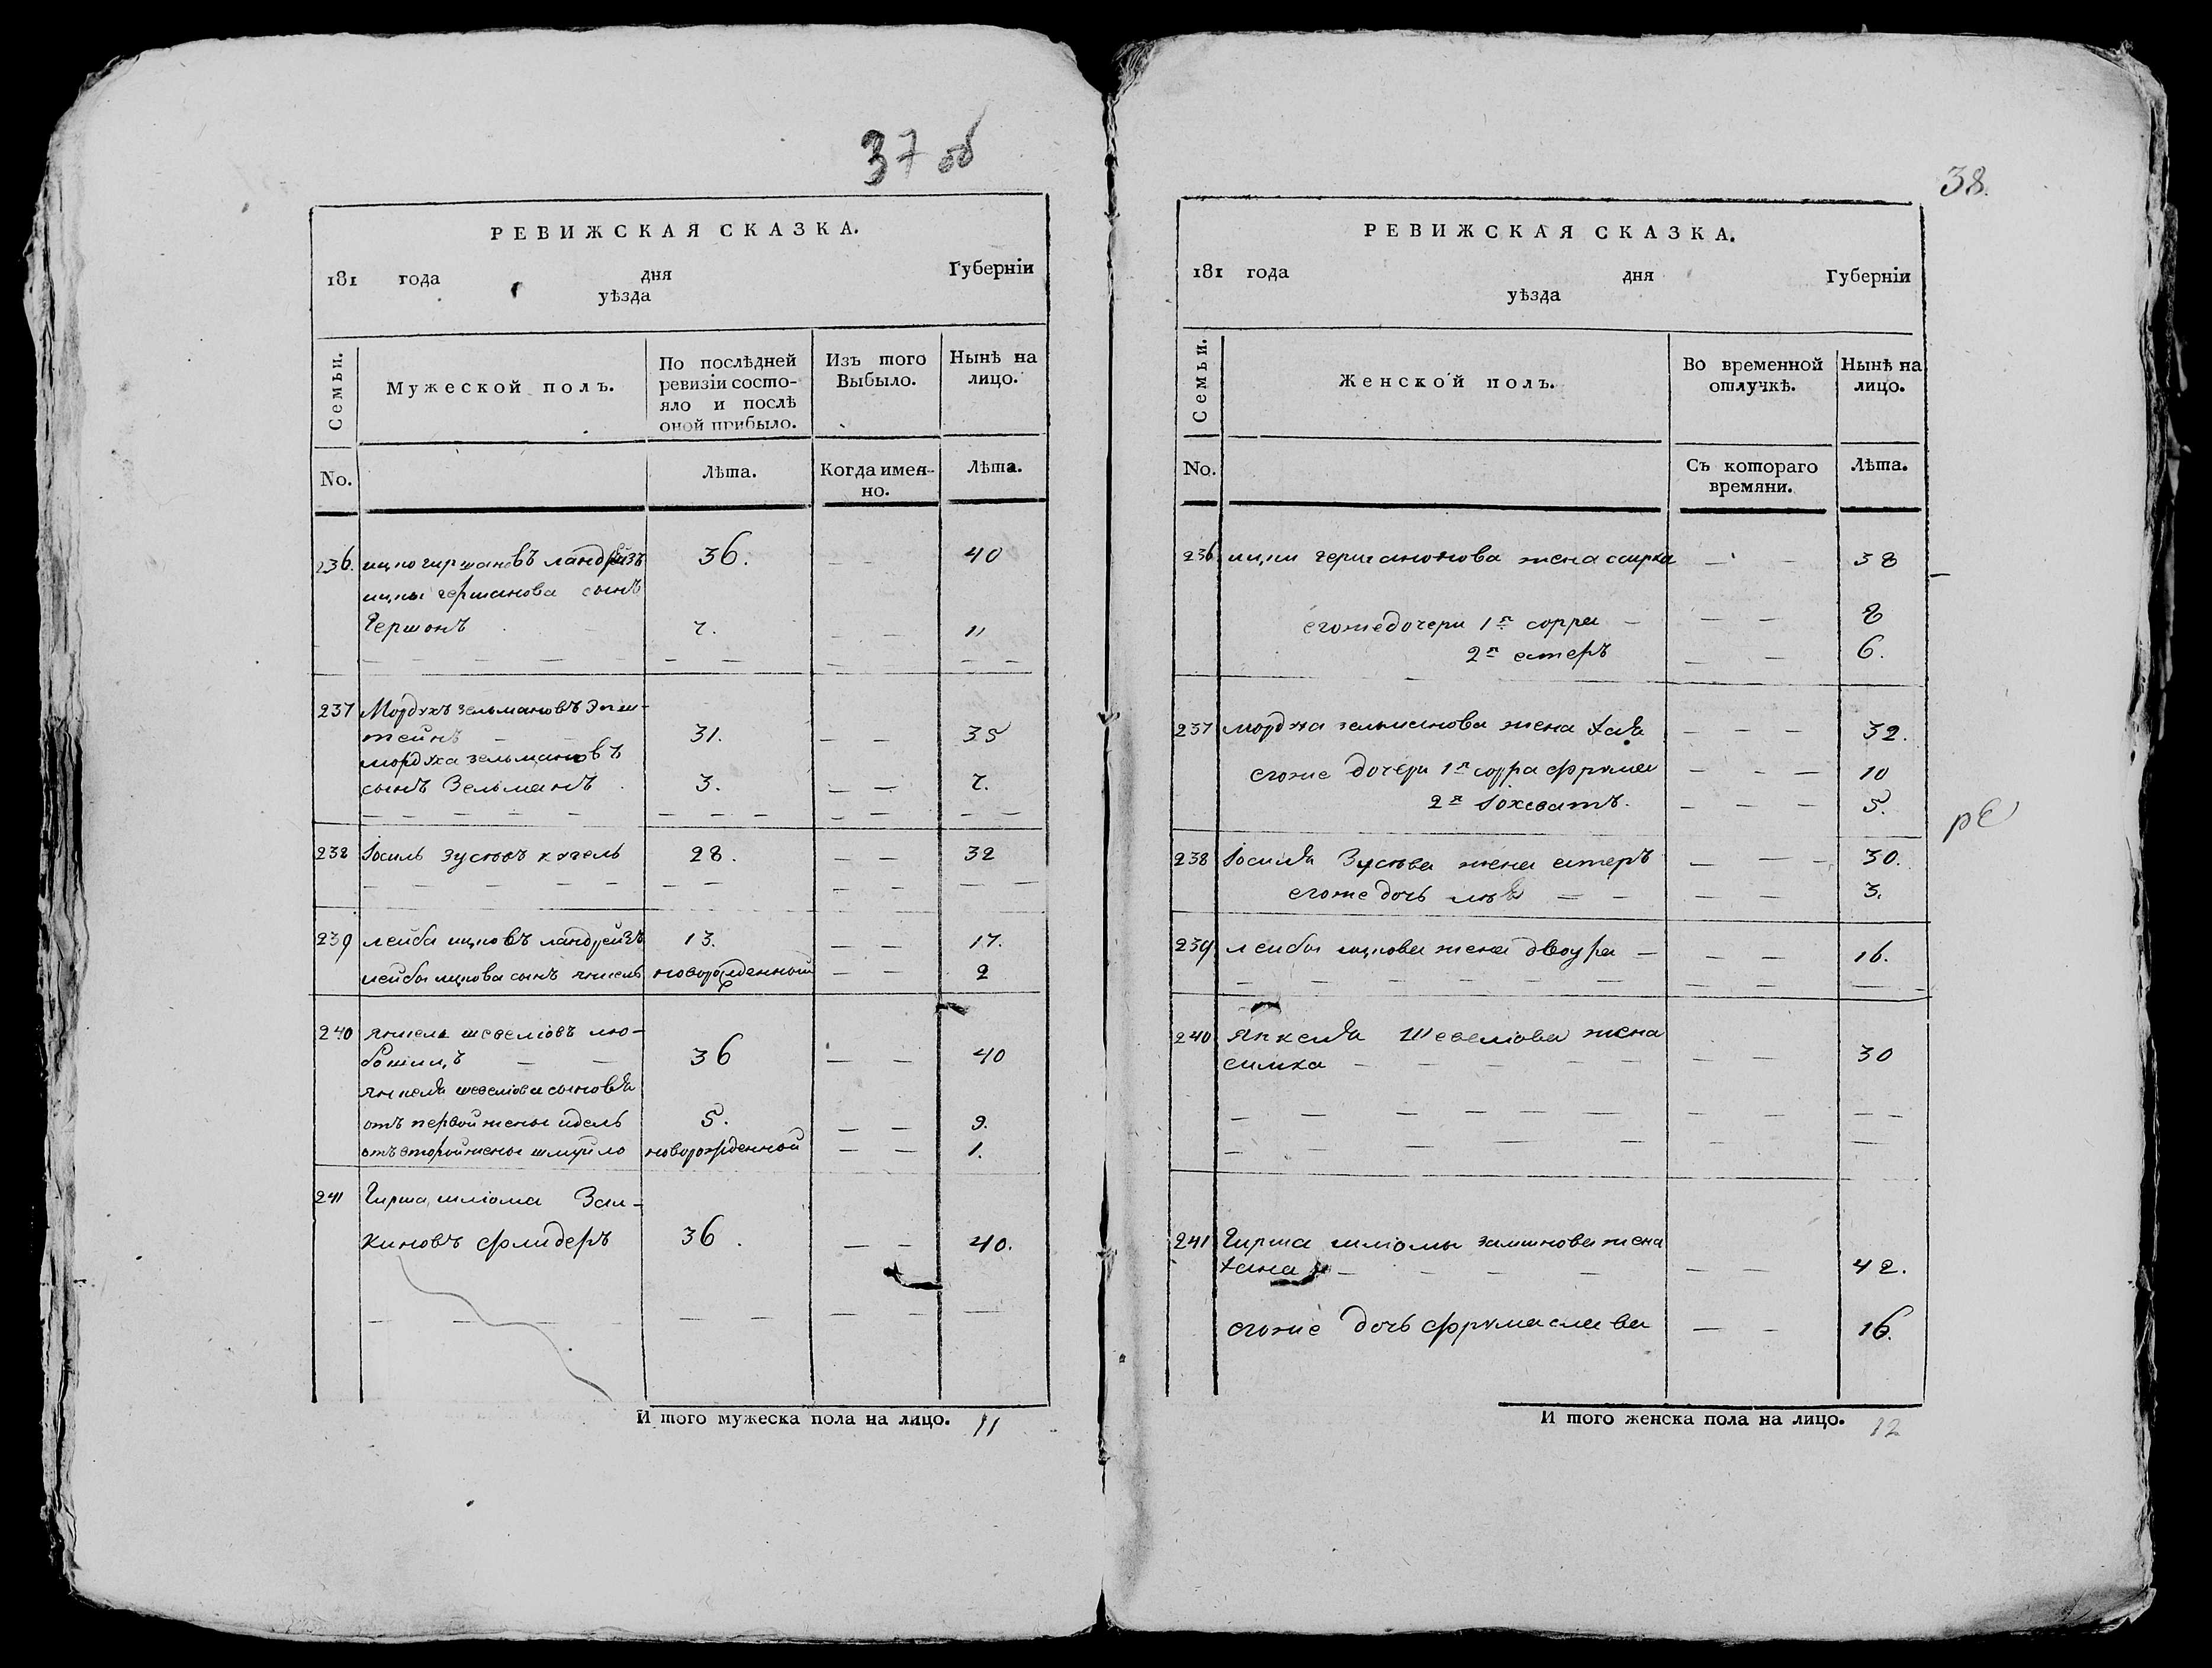 37 об
РЕВИЖСКАЯ СКАЗКА.
181 года дня Губерніи
уѣзда
Семьи.
Мужеской полъ.
По послѣдней ревизіи состо-
яло и послѣ
оной прибыло.
Изъ того
Выбыло.
Нынѣ на
лицо.
No.
Лѣта.
Когда имен-
но.
Лѣта.
236. ицко гиршановъ ландрейзъ 36. — — 40
ицки гершанова сынъ
Гершонъ 7. — — 11
237 Мордухъ зельмановъ Эпш-
тейнъ — — 31. — — 35
мордуха зельмановъ
сынъ Зельманъ 3. — — 7.
238 Іосиль Зусювъ кугель 28. — — 32
239 лейба ицковъ ландрейзъ 13. — — 17.
лейбы ицкова сынъ янкель новорожденный — — 2
240 янкель шевеліовъ лю-
бошицъ — — 36 — — 40
янкеля шевеліова сыновья
отъ первой жены идель 5. — — 9.
отъ второй жены шмуйло новорожденной — — 1.
241 Гирша шліома Зал-
киновъ флидеръ 36. — — 40.
И того мужеска пола на лицо. 11
38.
РЕВИЖСКАЯ СКАЗКА.
181 года дня Губерніи
уѣзда
Семьи.
Женской полъ.
Во временной
отлучкѣ.
Нынѣ на
лицо.
No.
Съ котораго
времяни.
Лѣта.
236 ицки жена сирка — — 38
егоже дочери 1я сорра — — — 8
2я естеръ — — 6.
237 мордха зельманова жена хая — — — 32.
егоже дочери 1я сорра фрума — — — 10
2я Іохеватъ. — — — 5.
238 Іосиля Зусюва жена естеръ — — — 30.
егоже дочь — — — — 3.
239 лейбы ицкова жена двоура — — — 16.
240 янкеля Шевеліова жена
симха — — — — — — 30
241 Гирша шліомы залкинова жена
хана — — — — — — 42.
егоже дочь фрума слава — — 16.
И того женска пола на лицо. 12